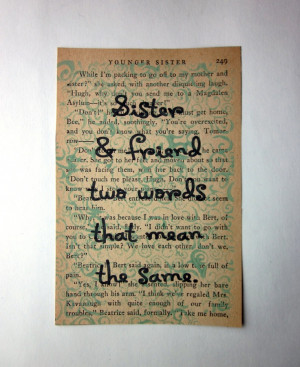 YOUNGER SISTER 249
While I'm packing to go off to my mother and
sister?" she asked, with another disquieting laugh.
"Hugh, why don't you send me to a Magdalen
Asylum—it's
Sister
"Don't!" get home,
Bee," he said, soothingly. "You're overexcited,
and you don't know what you're saying. Tomor-
row—"
& friend
She got to her feet and about so that
was facing him, her back to the door.
"Don't touch me, please, Hugh. Don't want to
know
two words
"Beatrice
to hear him.
"Why, it was because I was in love with Bert, of
course," I didn't want to go with
you to
that mean
Isn't that simple? We love each other, don't we,
Bert?"
"Beatrice," Bert said again, in a low tone full of
pain.
the same.
"Yes, I know!" she slipping her bare
hand through his arm. "I think we've regaled Mrs.
Kavanaugh with quite enough of our family
troubles," Beatrice said, formally. "Take me home,